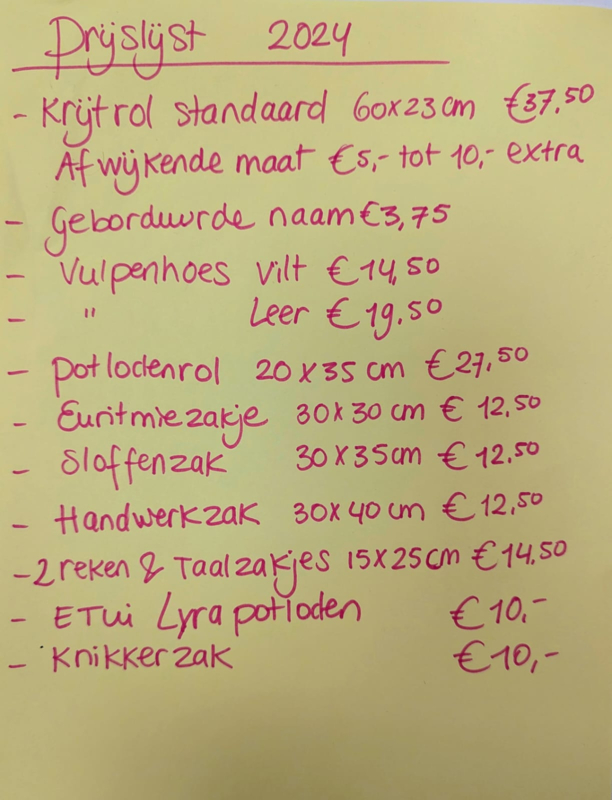 Prijslijst 2024
- Krijtrol standaard 60x23cm €37,50
Afwijkende maat €5,- tot 10,- extra
- Geborduurde naam €3,75
- Vulpenhoes vilt €14,50
- " Leer €19.50
- potlodenrol 20x35 cm €27,50
- Euritmiezakje 30x30 cm € 12.50
- Sloffenzak 30x35cm € 12.50
- Handwerkzak 30x40 cm €12,50
- 2 reken & Taalzakjes 15x25cm €14.50
- ETui Lyra potloden €10,-
- Knikkerzak €10,-